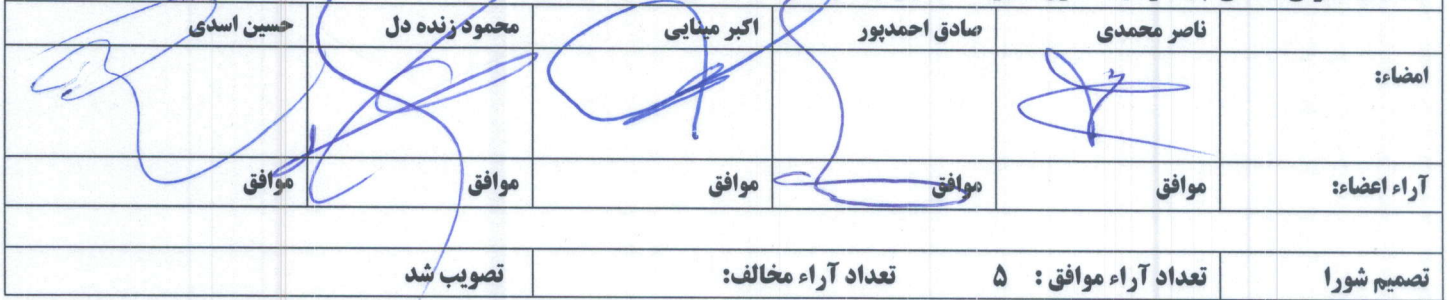 ناصر محمدی صادق احمدپور اکبر مینایی محمود زنده دل حسین اسدی
امضاء:
آراء اعضاء: موافق موافق موافق موافق موافق
تصمیم شورا تعداد آراء موافق : ۵ تعداد آراء مخالف: تصویب شد